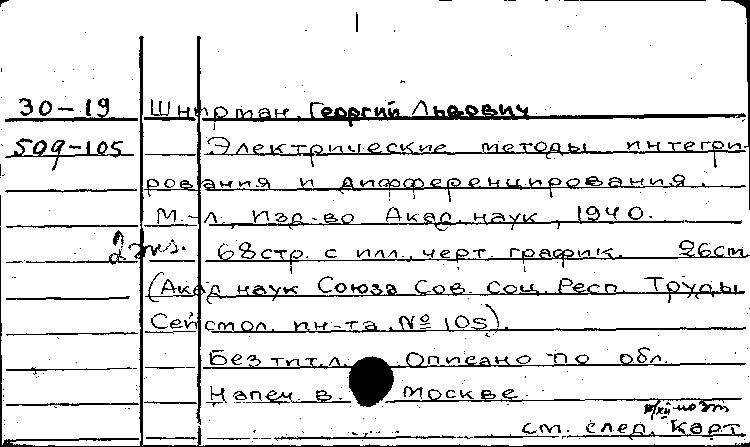 30-19 Шнирман, Георгий Львович
509-105 Электрические методы интегри-
рования и дифференцирования.
М.-Л., Изд-во Акад. наук, 1940.
2 экз. 68 стр. с илл., черт. график. 26 cm
(Акад наук Союза Сов. Соц. Респ. Труды
Сейсмол. ин-та. № 105).
Без тит. л. Описано по обл.
Напеч в. Москве
см. след. карт.